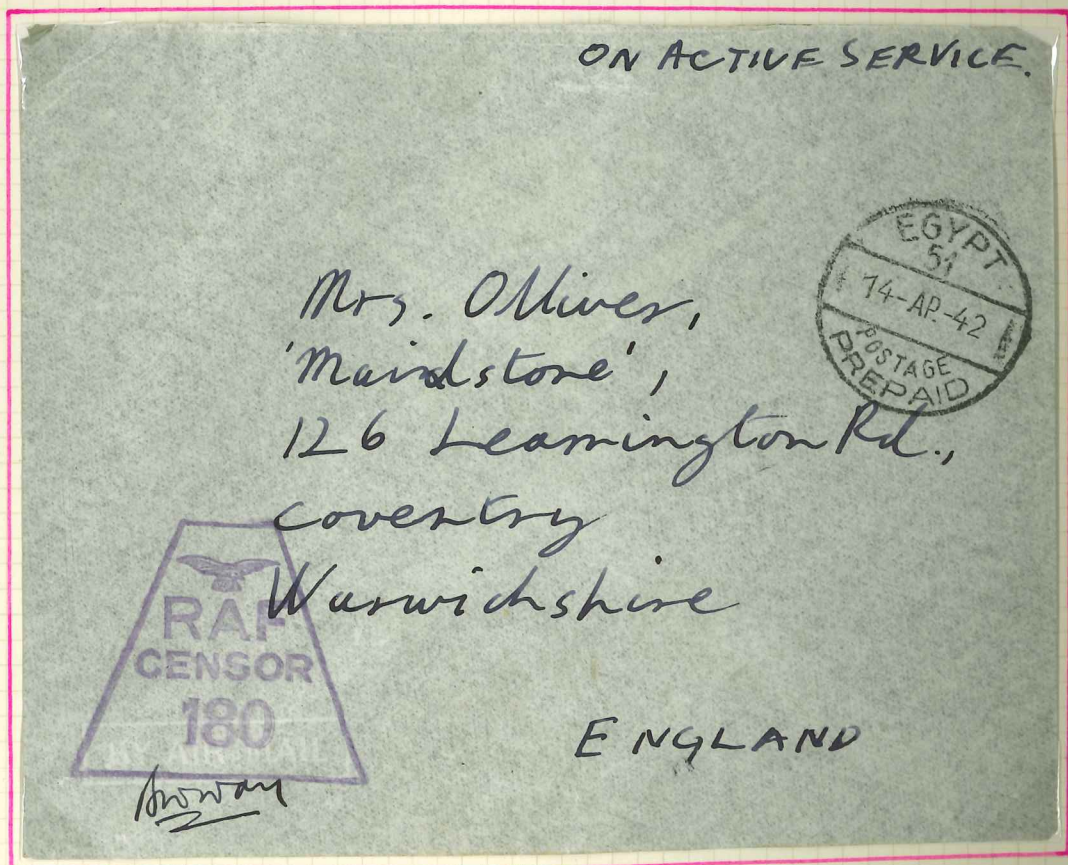 ON ACTIVE SERVICE.
EGYPT
51
14-AP.-42
POSTAGE
PREPAID
Mrs. Olliver,
'Maidstone',
126 Leamington Rd.,
Coventry
Warwickshire
RAF
CENSOR
180
BY AIR MAIL
ENGLAND